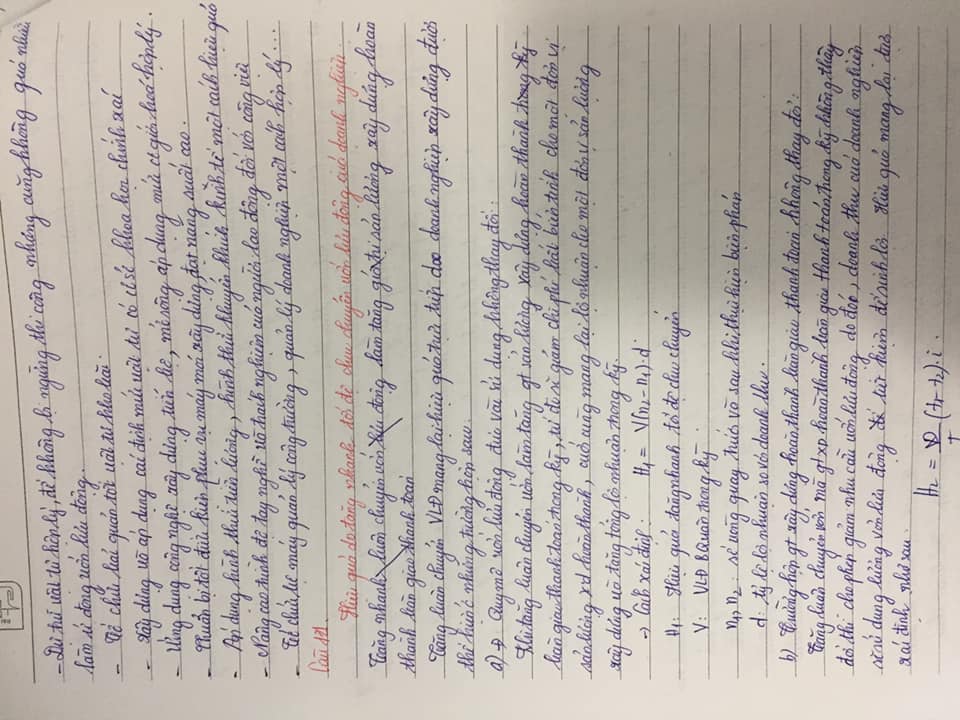 - Dự trữ vật tư hợp lý, để không bị ngừng thi công nhưng cũng không quá nhiều
làm ứ đọng vốn lưu động.
- Tổ chức bảo quản tốt vật tư kho bãi.
- Xây dựng và áp dụng các định mức vật tư có cơ sở khoa học chính xác
- Ứng dụng công nghệ xây dựng tiên tiến, mở rộng áp dụng mùa có giá hợp lý.
- Chuẩn bị tốt điều kiện phục vụ máy móc xây dựng đạt năng suất cao.
- Áp dụng hình thức tiền lương, hình thức khuyến khích kinh tế một cách hiệu quả
- Nâng cao trình độ tay nghề và trách nhiệm của người lao động đối với công việc
- Tổ chức bộ máy quản lý công trường, quản lý doanh nghiệp một cách hợp lý...
Câu 121. Hiệu quả do tăng nhanh tốc độ chu chuyển vốn lưu động của doanh nghiệp
Tăng nhanh luân chuyển vốn lưu động làm tăng giá trị sản lượng xây dựng hoàn
thành bàn giao thanh toán
Tăng luân chuyển VLĐ mang lại hiệu quả trực tiếp cho doanh nghiệp xây dựng được
thể hiện ở những trường hợp sau.
a) → Quy mô vốn lưu động đưa vào sử dụng không thay đổi:
Khi tăng luân chuyển vốn làm tăng gt sản lượng xây dựng hoàn thành trong kỳ
bàn giao thanh toán trong kỳ, từ đó sẽ giảm chi phí bất biến tính cho một đơn vị
sản lượng xd hoàn thành, cuối cùng mang lại lợi nhuận cho một đơn vị sản lượng
xây dựng và tăng tổng lợi nhuận trong kỳ.
→ Cách xác định: H1 = V(n2 - n1).d.
H1: Hiệu quả tăng nhanh tốc độ chu chuyển
V: VLĐ BQuân trong kỳ.
n1, n2: số vòng quay trước và sau khi thực hiện biện pháp
d: tỷ lệ lợi nhuận so với doanh thu.
b) Trường hợp gt xây dựng hoàn thành bàn giao thanh toán không thay đổi:
Tăng luân chuyển vốn mà gt xd hoàn thành bàn giao thanh toán trong kỳ không thay
đổi thì cho phép giảm nhu cầu vốn lưu động do đó, doanh thu của doanh nghiệp
sẽ sử dụng lượng vốn lưu động để tiết kiệm để sinh lời. Hiệu quả mang lại được
xác định như sau:
H2 = D/T (t1 - t2) i.